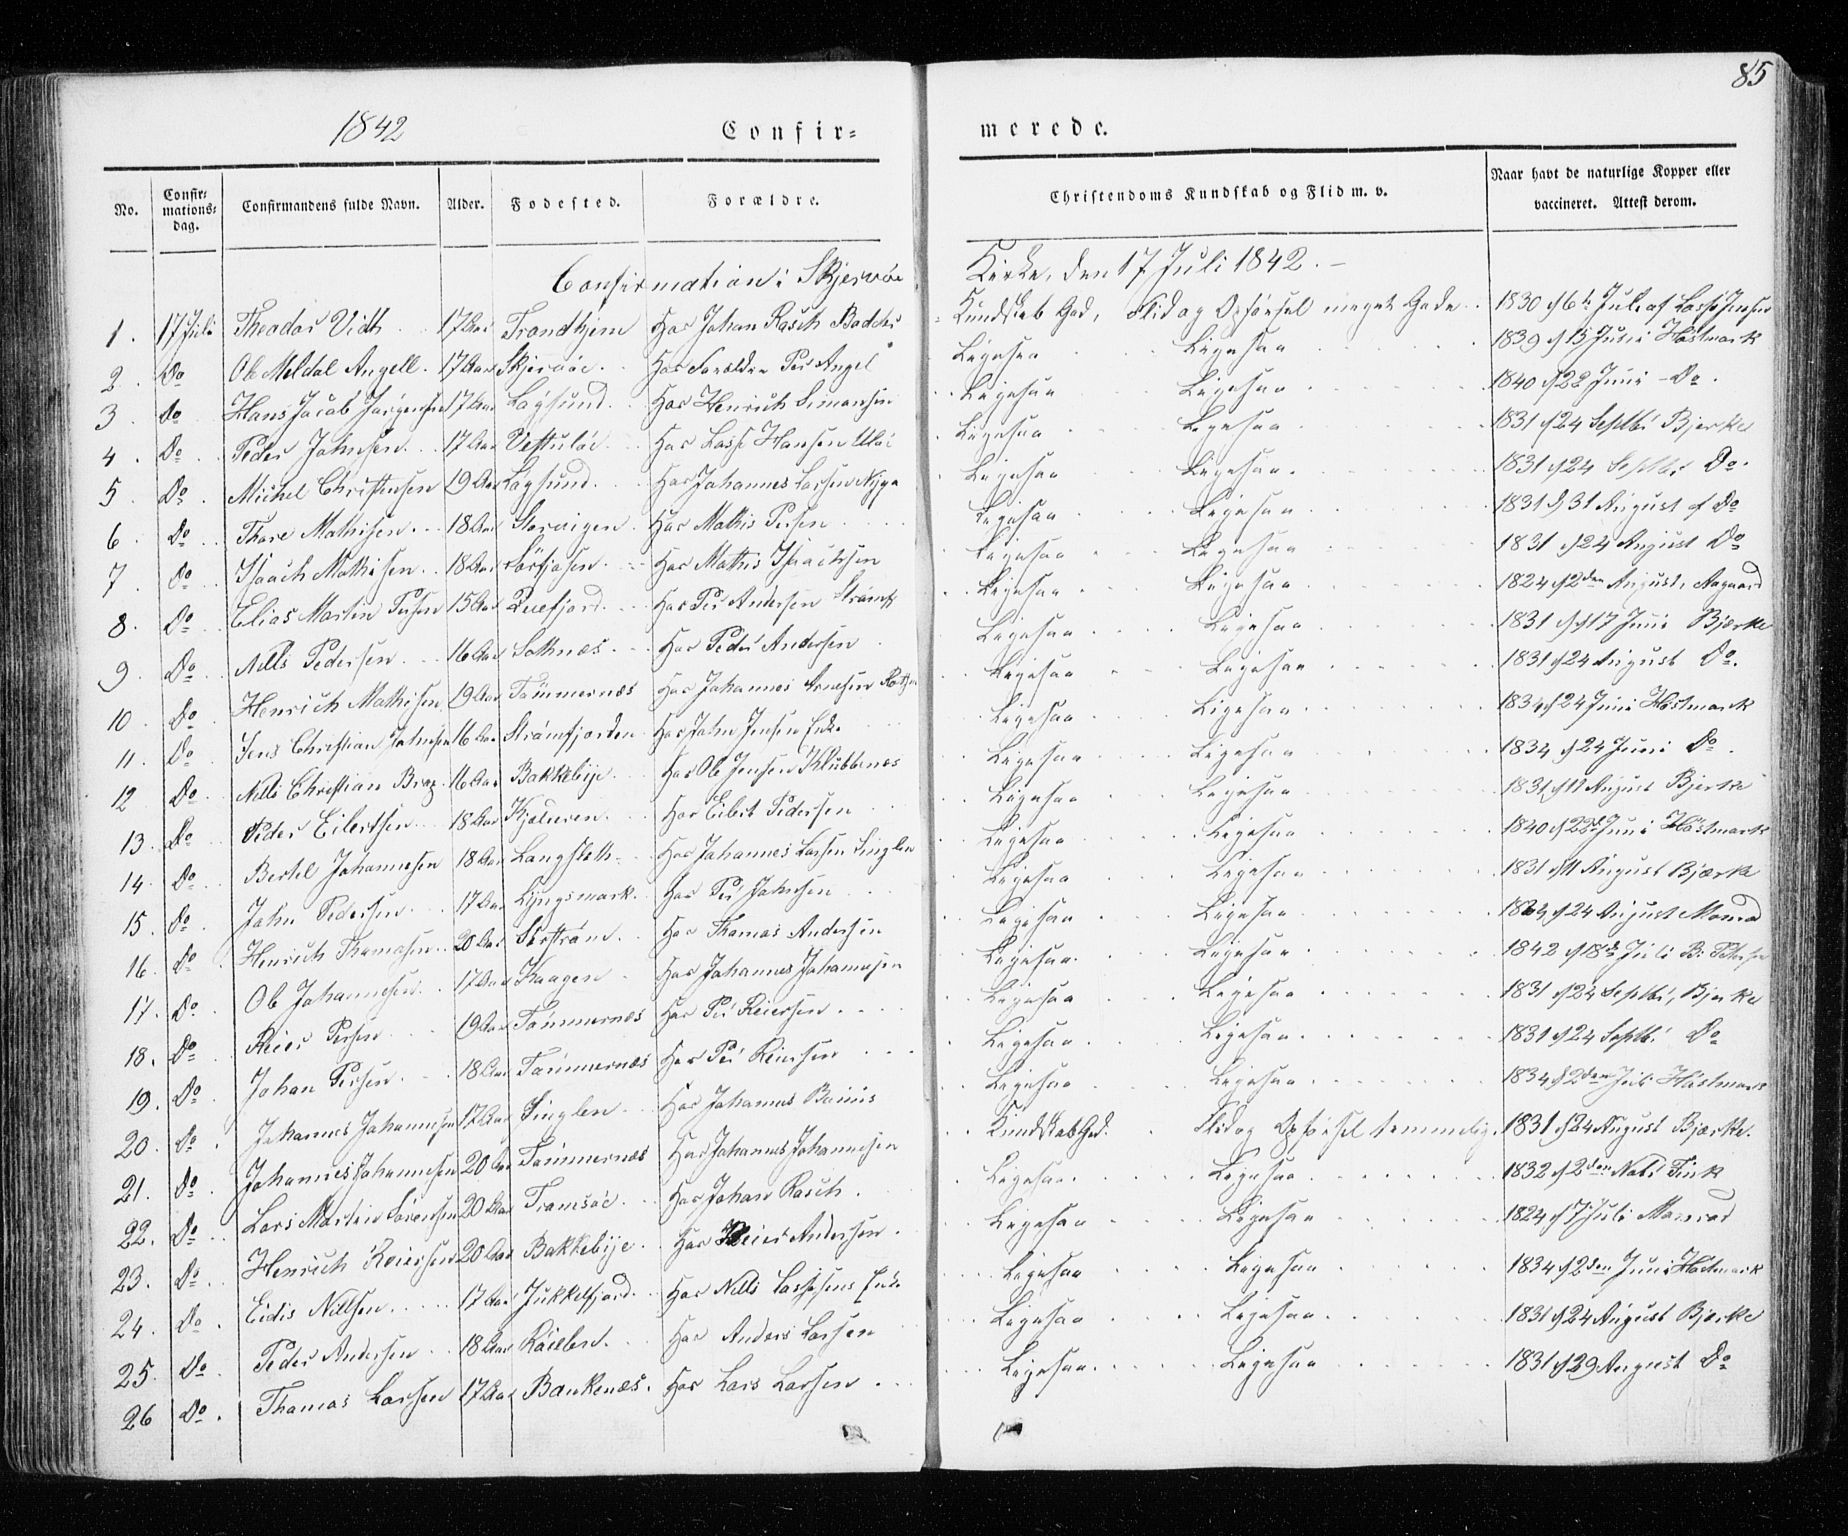 85
1842
Confir=
merede.
No.
Confir=
mations=
dag.
Confirmandens fulde Navn.
Alder.
Fodested.
Forældre.
Christendoms Kundskab og Flid m. v.
Naar havt de naturlige Kopper eller
vaccineret. Attest derom.
Confirmation i Skjervøe Kirke, den 17 Juli 1842. –
1. 17 Juli Theodor Vidth 17 Aar Trondhjem Hos Johan Rasch Kundskab God, Flid og Opførsel meget Gode. 1830
2 Do Ole Meldal Angell. 17 Aar Skjervöe. Hos Forældre Per Angel Ligesaa Ligesaa 1839 d 15 Juni Hostmark
3 do Hans Jacob Jørgensen 17 Aar Lagsund. Hos Henrich Simonsen Ligesaa Ligesaa 1840 d 22 Juni – Do.
4. Do Peder Johnsen 17 Aar Hos Lasse Hansen Ligesaa Ligesaa 1831 d 24 Septbr Bjerke
5 Do. Michel Christensen 19 Aar Lagsund. Hos Johannes Larsen Ligesaa Ligesaa. 1831 d 24 Septbr Do.
6 Do Thore Mathisen 18 Aar Storvigen Hos Mathis Persen Ligesaa Ligesaa 1831 d 31 August af Do
7 do Isaach Mathisen. 18 Aar Hos Mathis Isaachsen Ligesaa Ligesaa 1831 d 24 August Do
8. Do Elias Martin Persen 15 Aar Hos Per Andersen Strømfj Ligesaa Ligesaa 1824 d 2den August, Aagaard
9 Do. Nills Pedersen 16 Aar Sotknæs. Hos Peder Andersen Ligesaa Ligesaa 1831 d 17 Juni Bjerke
10. Do. Henrich Mathisen 19 Aar Tømmernæs Hos Johannes Arnesen Ligesaa Ligesaa 1831 d 24 August Do.
11. Do. Jens Christian Johnsen 16 Aar Strømfjorden Hos John Jensen Enke Ligesaa Ligesaa d 24 Juni Hostmark
12 Do. Nills Christian 16 Aar Bakkebÿe Hos Ole Jensen Klubbenæs Ligesaa Ligesaa 1834 d 24 Juni Do.
13. Do. Peder Eilertsen 18 Aar Kjøluren. Hos Eilert Pedersen Ligesaa Ligesaa August Bjerke
14. Do. Bertel Johannesen 18 Aar Langsleth Hos Johannes Larsen Singlen Ligesaa Ligesaa 1840 d 22 Juni Hostmark
15. Do. John Pedersen 17 Aar Lyngsmark. Hos Per Johnsen Ligesaa Ligesaa 1831 d 11 August Bjerke
16. Do. Henrich Thomasen 20 Aar Hos Thomas Andersen Ligesaa Ligesaa d 24 August Monrad
17. Do. Ole Johannesen 17 Aar Kaagen Hos Johannes Johannesen Ligesaa. Ligesaa 1842 d 18de Juli B. Petersen
18. Do Reier Persen 19 Aar Tømmernæs Hos Per Reiersen Ligesaa Ligesaa 1831 d 24 Septbr, Bjerke
19. Do. Johan Persen 18 Aar Tømmernæs Hos Per Reiersen Ligesaa Ligesaa 1831 d 24 Septbr Do
20. do. Johannes Johannesen 17 Aar Singlen. Hos Johannes Ligesaa Ligesaa 1834 d 2den Juli Hostmark
21. Do. Johannes Johannesen 20 Aar Tømmernæs Hos Johannes Johannesen Kundskab God. Flid og Opførsel temmelig. 1831 d 24 August Bjerke.
22. Do. Lars Martin Sørensen 20 Aar Tromsøe. Hos Johan Rasch. Ligesaa Ligesaa 1832 d 2den Fink
23. Do. Henrich Reiersen 20 Aar Bakkebÿe. Hos Reier Andersen. Ligesaa Ligesaa 1824 d 17 Juli Monrad
24. Do. Eidis Nillsen 17 Aar Jukkelfjord. Hos Nills Enke Ligesaa Ligesaa 1834 d 2den Juni Hostmark
25. Do Peder Andersen 18 Aar Hos Anders Larsen Ligesaa Ligesaa 1831 d 24 August Bjerke
26 Do. Thomas Larsen 17 Aar Bankenæs. Hos Lars Larsen Ligesaa Ligesaa 1831 d 29 August Do